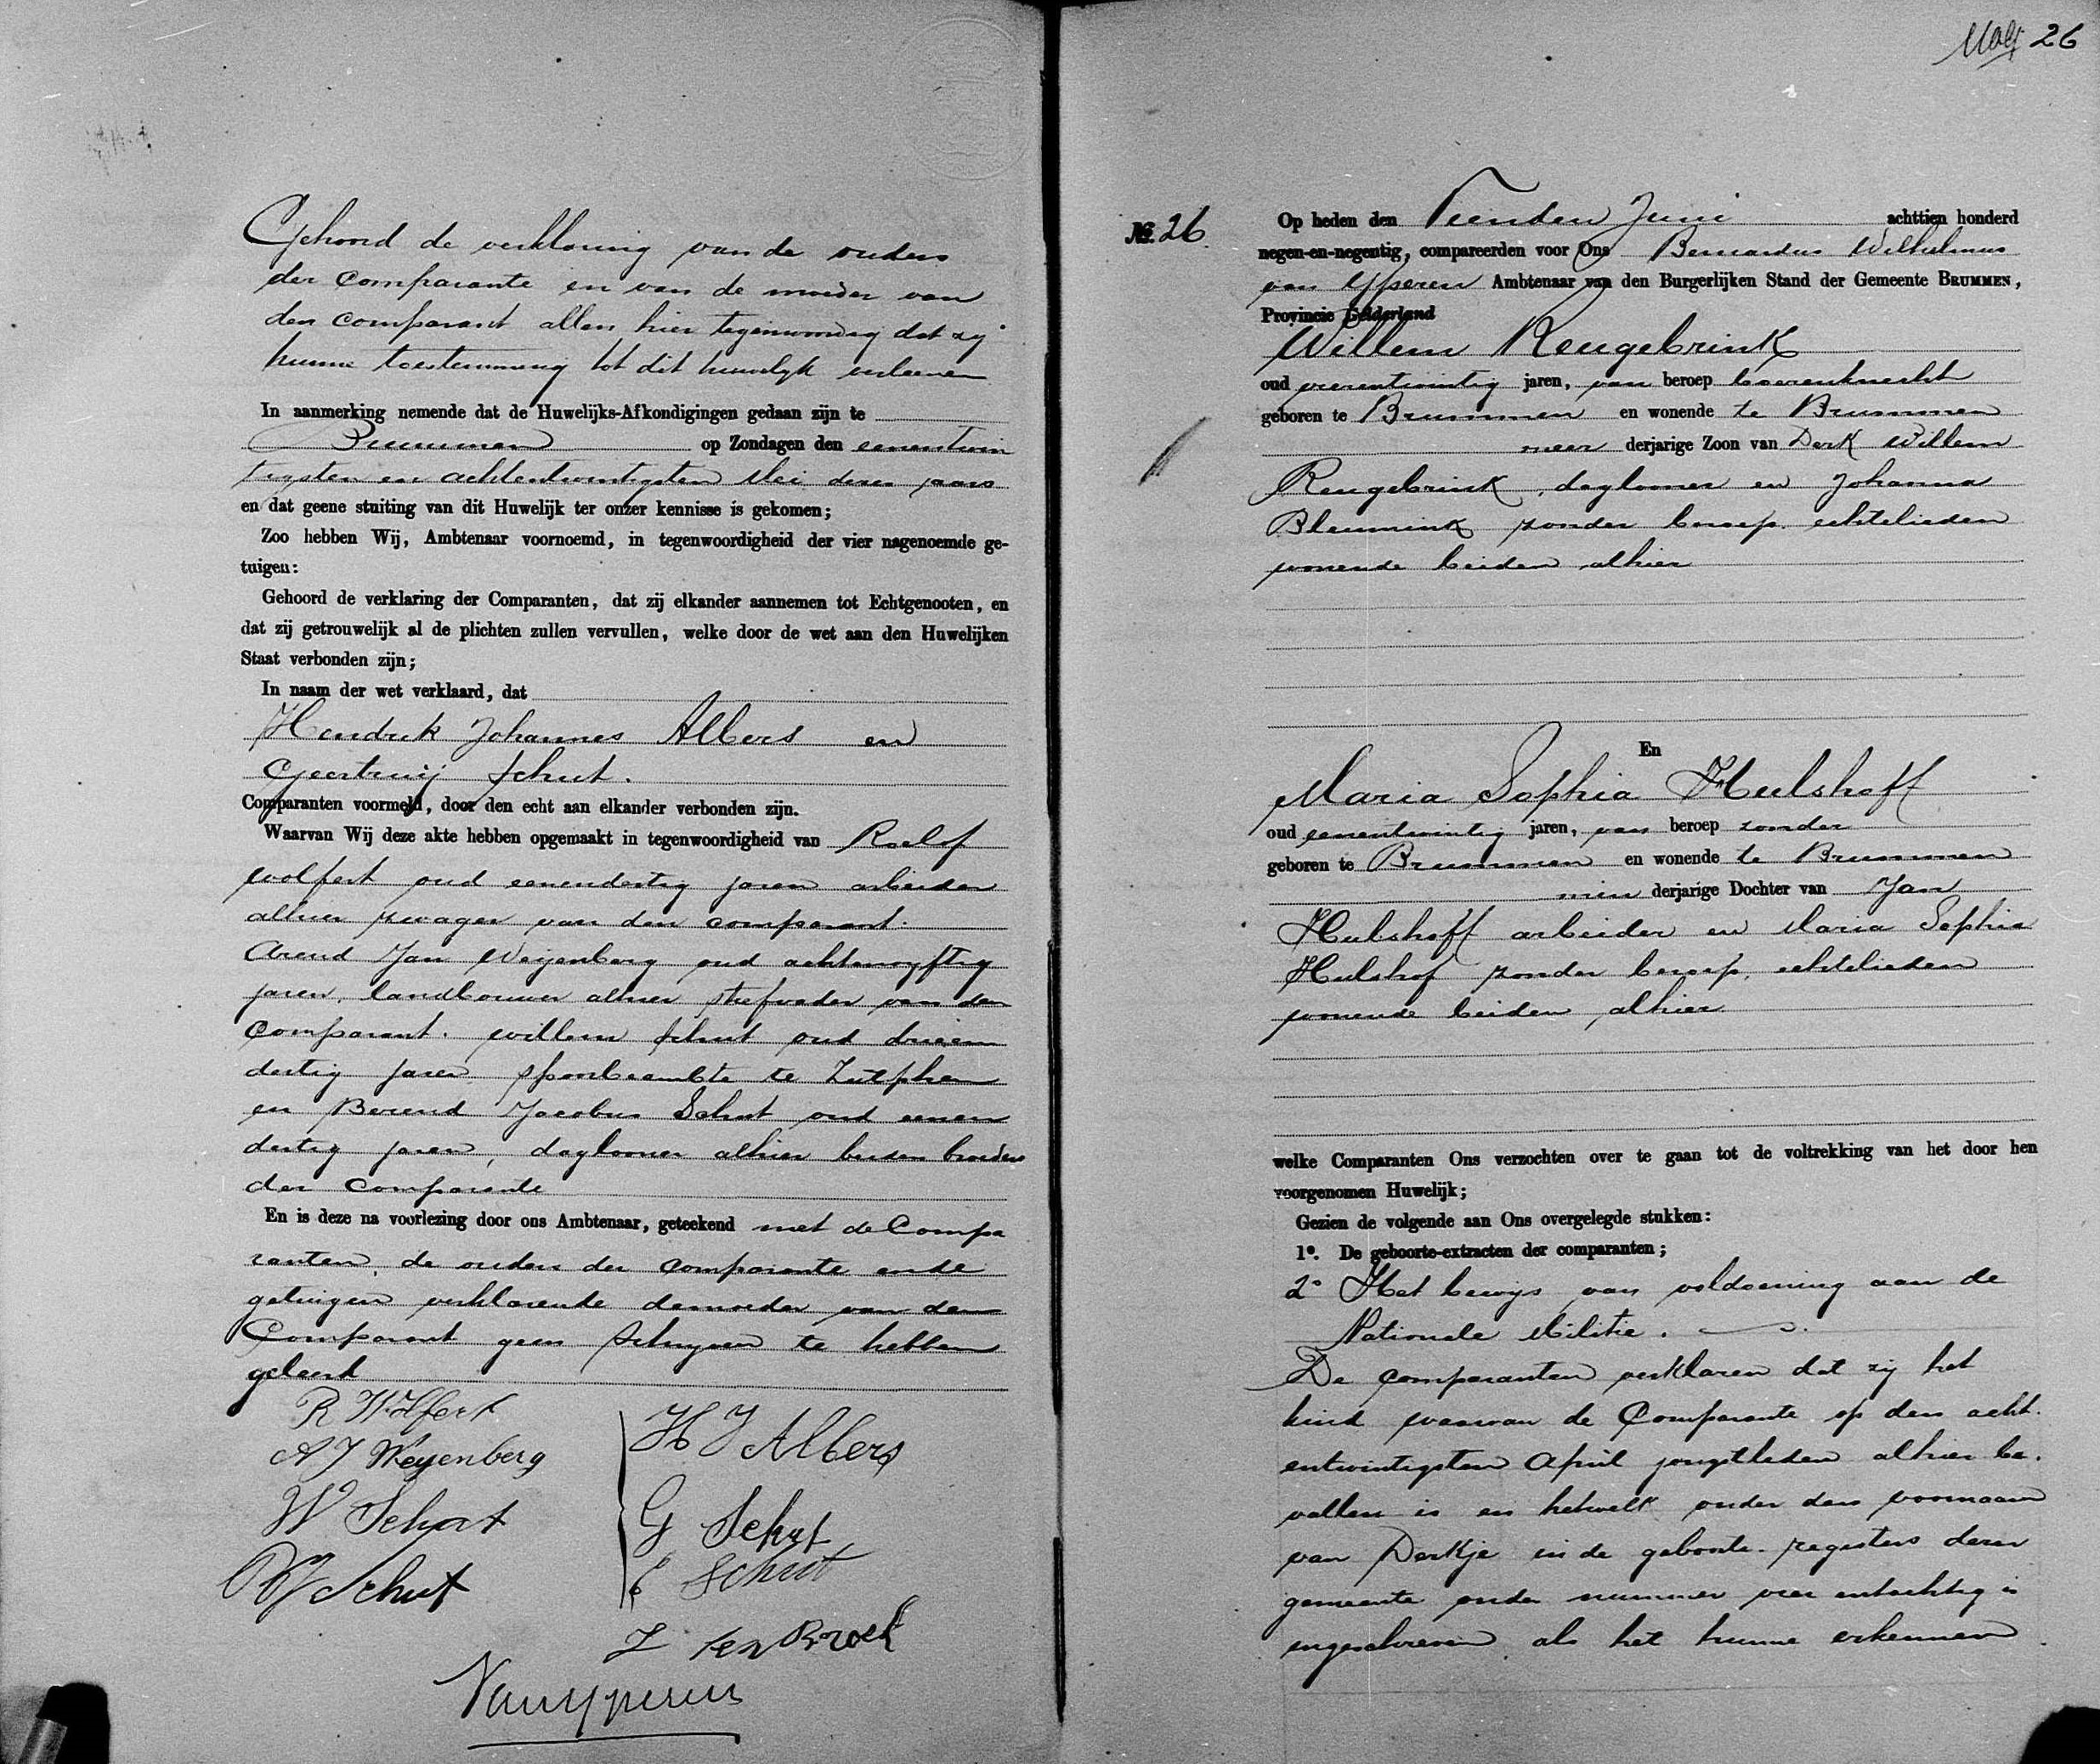 Gehoord de verklaring van de ouders
der Comparante en van de moeder van
den Comparant allen hier tegenwoordig dat zij
hunne toestemming tot dit huwelijk verleenen
In aanmerking nemende dat de Huwelijks-Afkondigingen gedaan zijn te
Brummen op Zondagen den eenentwin
tigsten en achtentwintigsten Mei dezes jaars
en dat geene stuiting van dit Huwelijk ter onzer kennisse is gekomen;
Zoo hebben Wij, Ambtenaar voornoemd, in tegenwoordigheid der vier nagenoemde ge-
tuigen:
Gehoord de verklaring der Comparanten, dat zij elkander aannemen tot Echtgenooten, en
dat zij getrouwelijk al de plichten zullen vervullen, welke door de wet aan den Huwelijken
Staat verbonden zijn;
In naam der wet verklaard, dat
Hendrik Johannes Albers en
Geertruij Schut.
Comparanten voormeld, door den echt aan elkander verbonden zijn.
Waarvan Wij deze akte hebben opgemaakt in tegenwoordigheid van Roelof
Wolfert oud eenendertig jaren arbeider
alhier zwager van den comparant.
Arend Jan Weijenberg oud achtenvijftig
jaren, landbouwer alhier stiefvader van den
Comparant. Willem Schut oud drieën
dertig jaren spoorbeambte te Zutphen
en Berend Jacobus Schut oud eenen
dertig jaren, daglooner alhier beiden broeders
der Comparante
En is deze na voorlezing door ons Ambtenaar, geteekend met de Compa
ranten, de ouders der Comparante en de
getuigen verklarende de moeder van den
Comparant geen schrijven te hebben
geleerd
R Wolfert
H J Albers
A J Weyenberg
W Schut
G Schut
E Schut
B J Schut
Z ten Broek
Van Yperen
26
No. 26.
Op heden den Tienden Juni achttien honderd
negen-en-negentig, compareerden voor Ons Bernardus Wilhelmus
van Yperen Ambtenaar van den Burgerlijken Stand der Gemeente BRUMMEN,
Provincie Gelderland
Willem Reugebrink
oud vierentwintig jaren, van beroep boerenknecht
geboren te Brummen en wonende te Brummen
meer derjarige Zoon van Derk Willem
Reugebrink, daglooner en Johanna
Bleumink zonder beroep. echtelieden
wonende beiden alhier
En
Maria Sophia Hulshoff
oud eenentwintig jaren, van beroep zonder
geboren te Brummen en wonende te Brummen
min derjarige Dochter van Jan
Hulshoff arbeider en Maria Sophia
Hulshof zonder beroep, echtelieden
wonende beiden alhier
welke Comparanten Ons verzochten over te gaan tot de voltrekking van het door hen
voorgenomen Huwelijk;
Gezien de volgende aan Ons overgelegde stukken:
1º. De geboorte-extracten der comparanten;
2º Het bewijs van voldoening aan de
Nationale Militie.
De Comparanten verklaren dat zij het
kind waarvan de Comparante op den acht.
entwintigsten April jongstleden alhier be.
vallen is en hetwelk onder den voornaam
van Derkje in de geboorte-registers dezer
gemeente onder nummer vier entachtig is
ingeschreven als het hunne erkennen